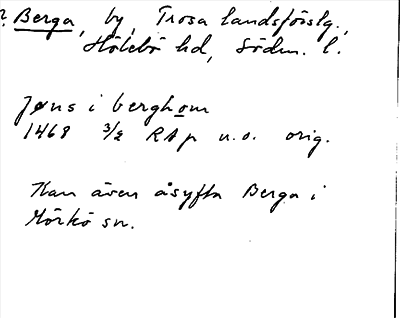 ? Berga, by, Trosa landsförslg.,
Hölebo hd, Södm. l.
Jøns i berghom
1468 3/2 RAp u.o. orig.
Kan även åsyfta Berga i
Mörkö sn.